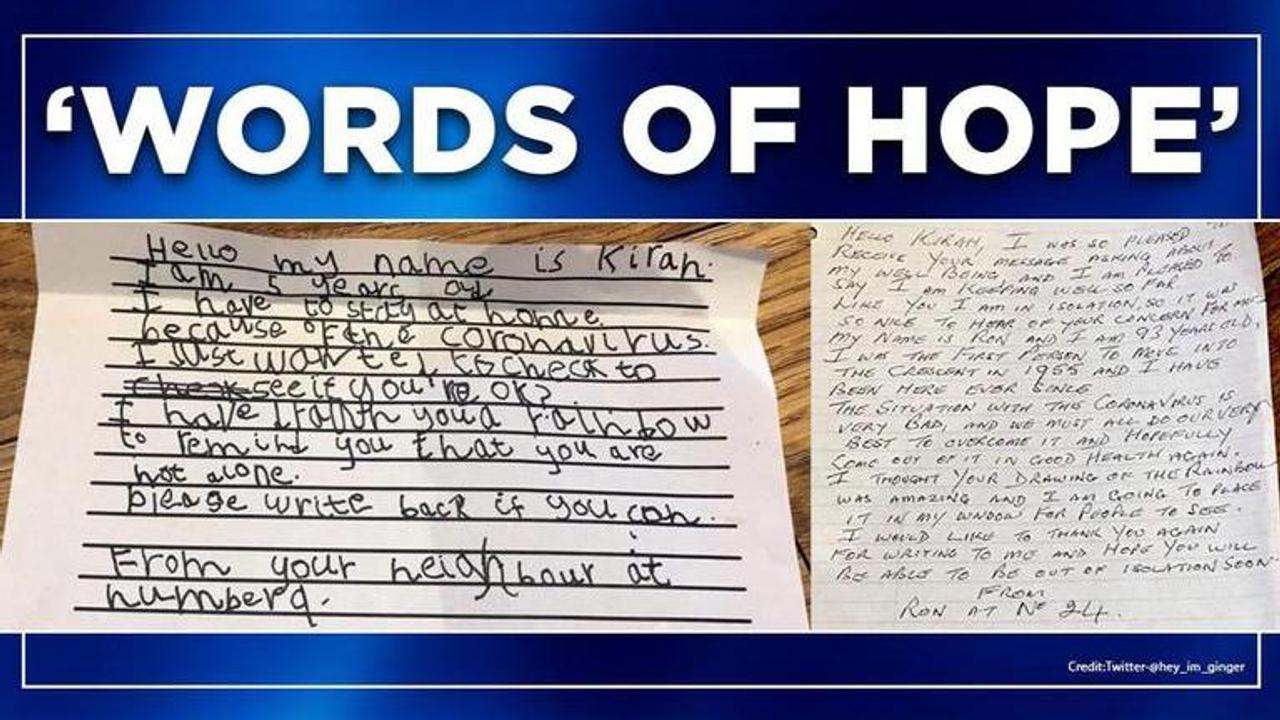 ‘WORDS OF HOPE’
Hello my name is Kirah.
I am 5 years old
I have to stay at home
because of the coronavirus.
I Just wanted to check to
check see if you're ok?
I have drawn you a rainbow
to remind you that you are
not alone.
please write back if you can.
From your neighbour at
number 9.
HELLO KIRAH, I WAS SO PLEASED
RECEIVE YOUR MESSAGE ASKING ABOUT
MY WELL BEING AND I AM PLEASED TO
SAY I AM KEEPING WELL SO FAR
LIKE YOU I AM IN ISOLATION, SO IT WAS
SO NICE TO HEAR OF YOUR CONCERN FOR ME
MY NAME IS RON AND I AM 93 YEARS OLD,
I WAS THE FIRST PERSON TO MOVE INTO
THE CRESCENT IN 1955 AND I HAVE
BEEN HERE EVER SINCE
THE SITUATION WITH THIS CORONAVIRUS IS
VERY BAD, AND WE MUST ALL DO OUR VERY
BEST TO OVERCOME IT AND HOPEFULLY
COME OUT OF IT IN GOOD HEALTH AGAIN.
I THOUGHT YOUR DRAWING OF THE RAINBOW
WAS AMAZING AND I AM GOING TO PLACE
IT IN MY WNDOW FOR PEOPLE TO SEE.
I WOULD LIKE TO THANK YOU AGAIN
FOR WRITING TO ME AND HOPE YOU WILL
BE ABLE TO BE OUT OF ISOLATION SOON
FROM
RON AT Nº 24.
Credit:Twitter-@hey_im_ginger